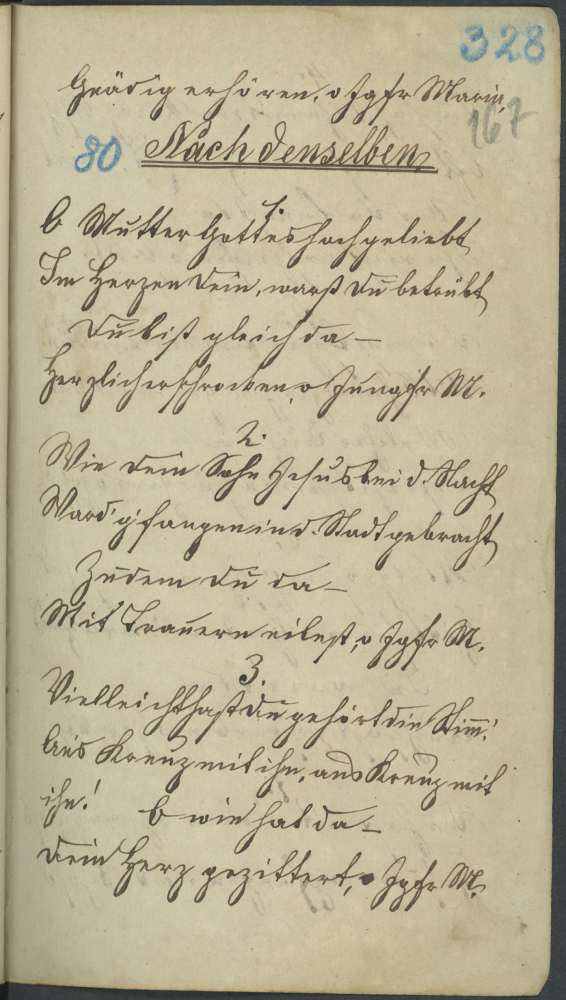 328
Gnädig erhören, o Jgfr Maria,
167
80 Nach denselben
1.
O Mutter Gottes hochgeliebt
Im Herzen dein, warst du betrübt
Du bist gleich da —
Herzlich erschrocken, o Jungfr M.
2.
Wie dein Sohn Jesus bei d. Nacht
Ward g'fangen in d. Stadt gebracht
Zudem du da —
Mit Trauern eilest, o Jgfr M.
3.
Vielleicht hast du gehört die Stimm:
Ans Kreuz mit ihn, ans Kreuz mit
ihn! O wie hat da —
Dein Herz gezittert, o Jgfr M.